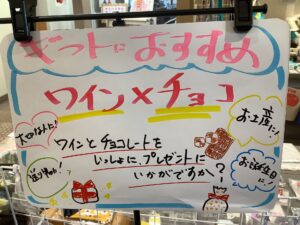 ギフトにおすすめ
ワイン×チョコ
大切な人に!
お土産に!
ワインとチョコレートを
いっしょに、プレゼントに
いかがですか?